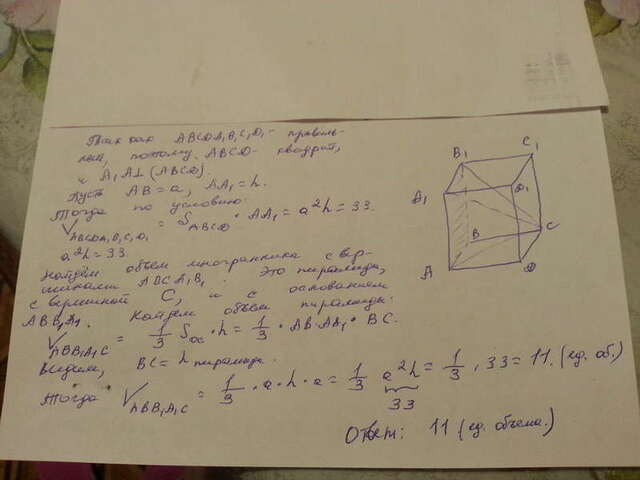 Так как ABCDA₁B₁C₁D₁ - правиль-
ная, поэтому ABCD - квадрат,
и A₁A⊥(ABCD).
Пусть AB = a, AA₁ = h.
Тогда по условию:
V ABCDA₁B₁C₁D₁ = S ABCD · AA₁ = a²h = 33.
a²h = 33.
Найдём объем многогранника с вер-
шинами ABCA₁B₁. Это пирамида,
с вершиной C, и с основанием
ABB₁A₁. Найдем объем пирамиды:
V ABB₁A₁C = 1/3 Sос · h = 1/3 · AB · AA₁ · BC.
Видим, BC = h пирамиды.
Тогда V ABB₁A₁C = 1/3 · a · h · a = 1/3 a²h = 1/3 · 33 = 11. (ед. об.)
33
Ответ: 11 (ед. объема.)
B₁ C₁
A₁ D₁
B C
A D